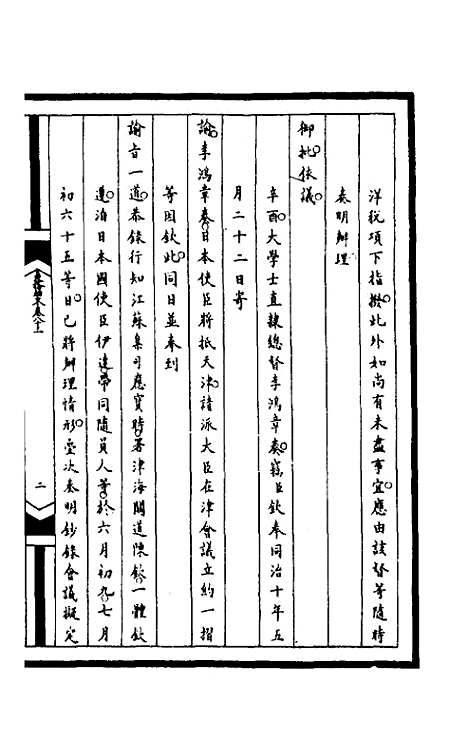 洋稅項下指撥此外如尚有未盡事宜應由該督等隨時
奏明辦理
御批依議
辛酉大學士直隸總督李鴻章奏竊臣欽奉同治十年五
月二十二日寄
諭李鴻章奏日本使臣將抵天津請派大臣在津會議立約一摺
等因欽此同日並奉到
諭旨一道恭錄行知江蘇臬司應寶時署津海關道陳欽一體欽
遵洎日本國使臣伊達帶同隨員人等於六月初九七月
初六十五等日已將辦理情形疊次奏明鈔錄會議擬定
二